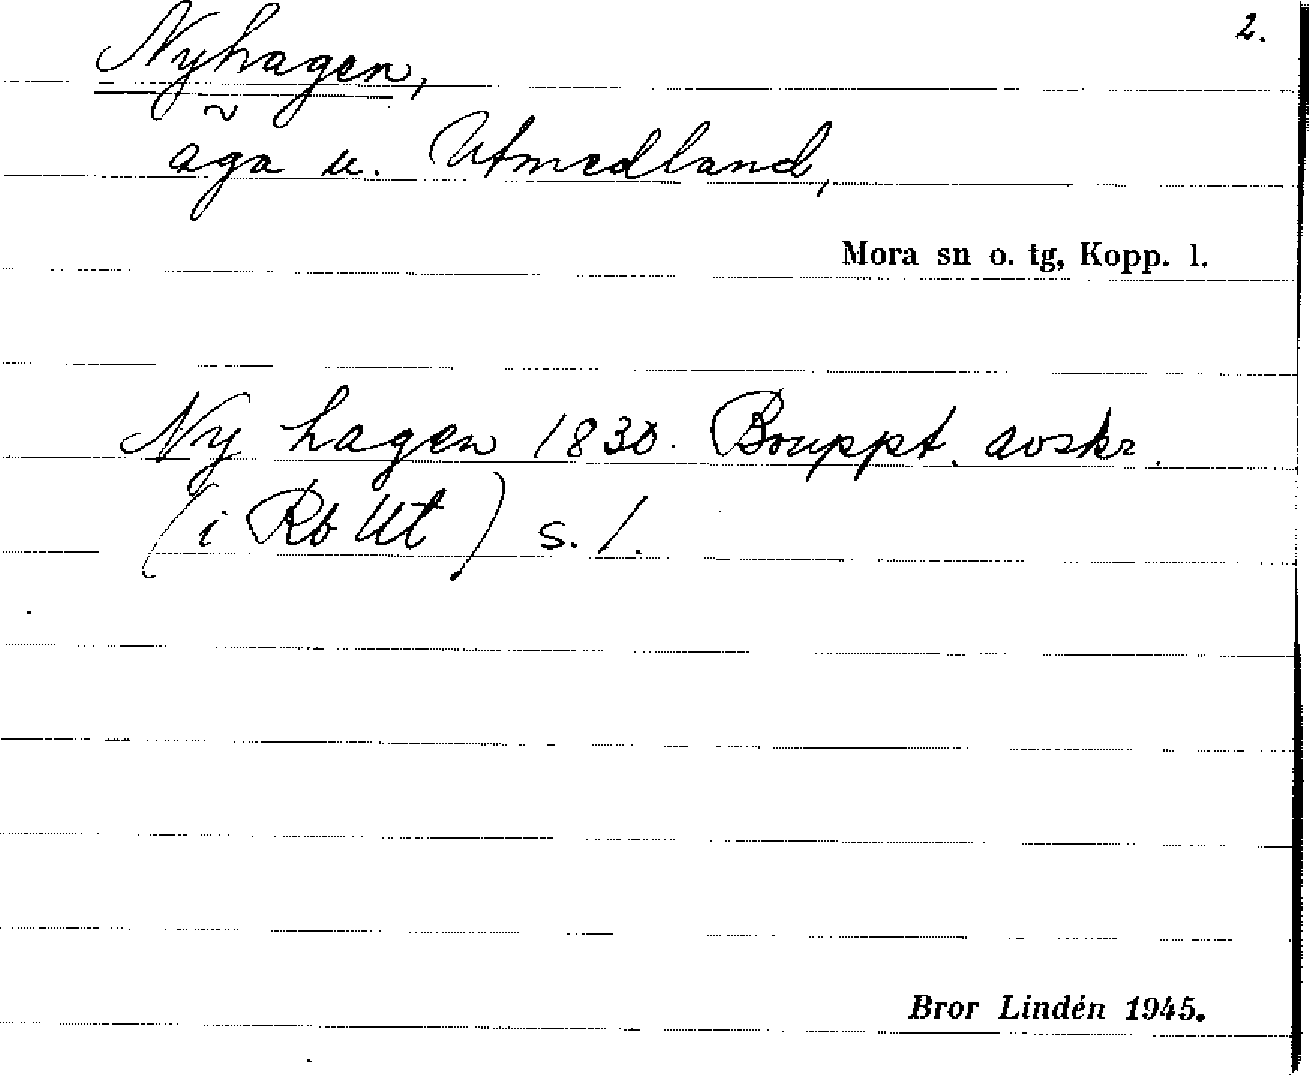 2.
Nyhagen,
äga u. Utmedland,
Mora sn o. tg, Kopp. l.
Ny hagen 1830. Bouppt. avskr.
(i Rb Ut) s. 1.
Bror Lindén 1945.